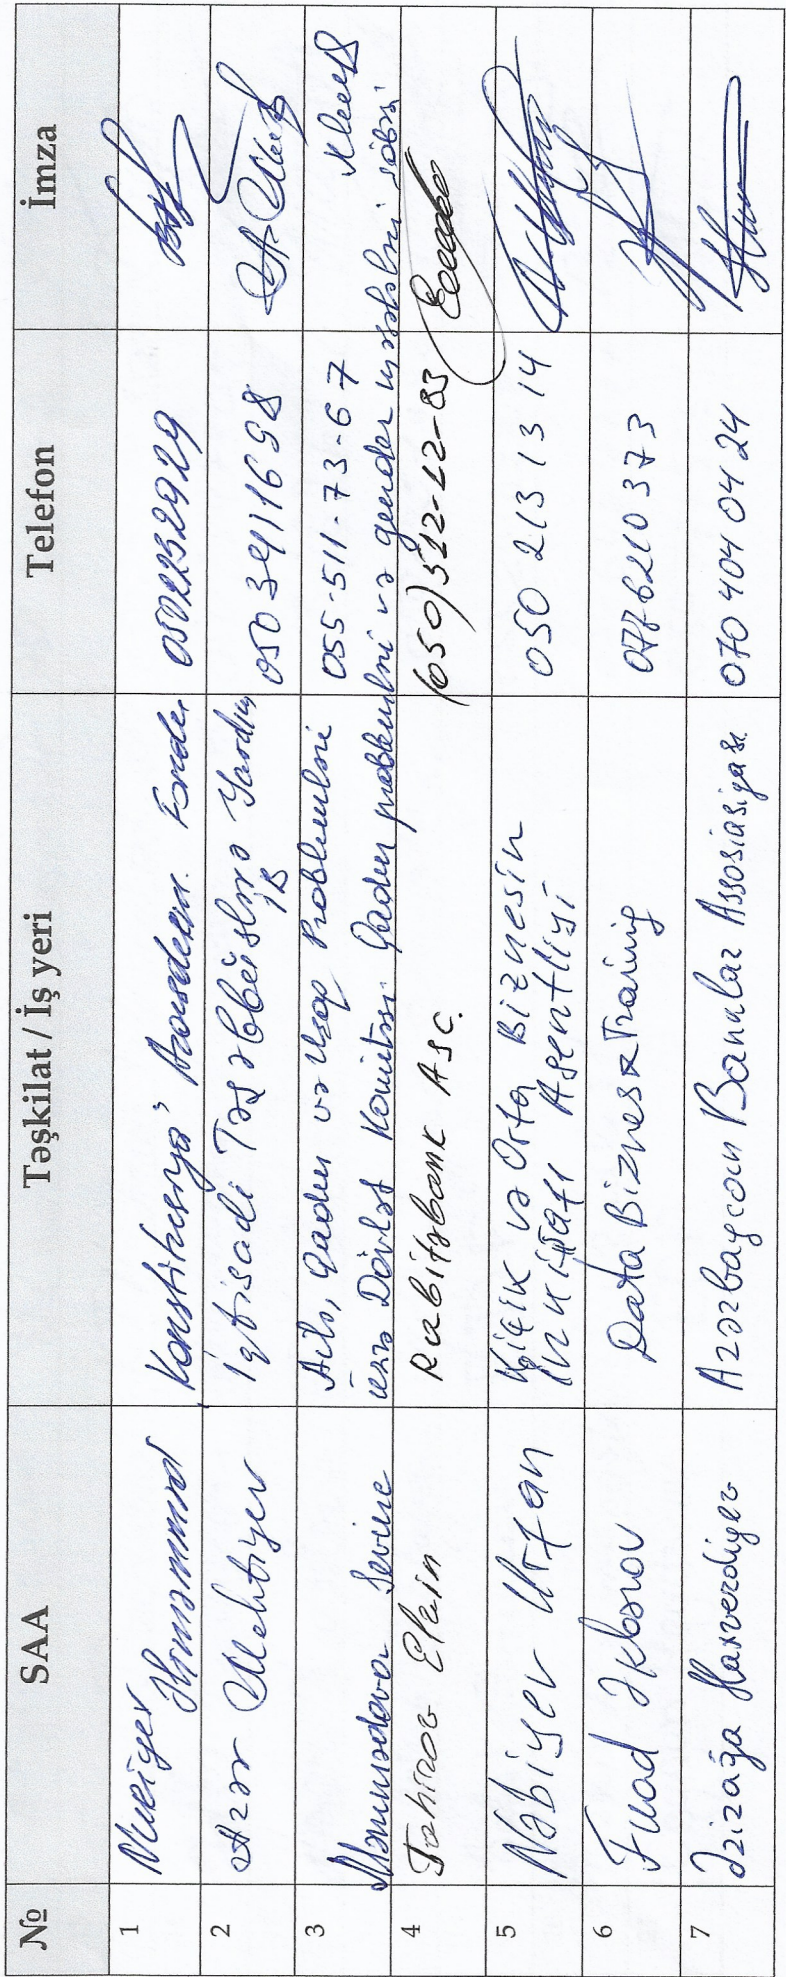 № SAA Təşkilat / İş yeri Telefon İmza
1 Əliməmməd "Konstitusiya" Araşdırm. Fondu 0502252929
2 Azər Mehtiyev İqtisadi Təşəbbüslərə Yardım İB 050 3411698
3 Məmmədova Sevinc Ailə, Qadın və Uşaq Problemləri 055-511-73-67
üzrə Dövlət Komitəsi Qadın problemləri və gender məsələləri şöbəsi
4 Tahirov Elçin Rabitəbank ASC. (050)512-12-83
5 Nəbiyev Urfan Kiçik və Orta Biznesin 050 213 13 14
İnkişafı Agentliyi
6 Fuad Əkbərov Data Biznes & Training 0776210373
7 Əzizağa Haqverdiyev Azərbaycan Banklar Assosiasiyası 070 404 04 24